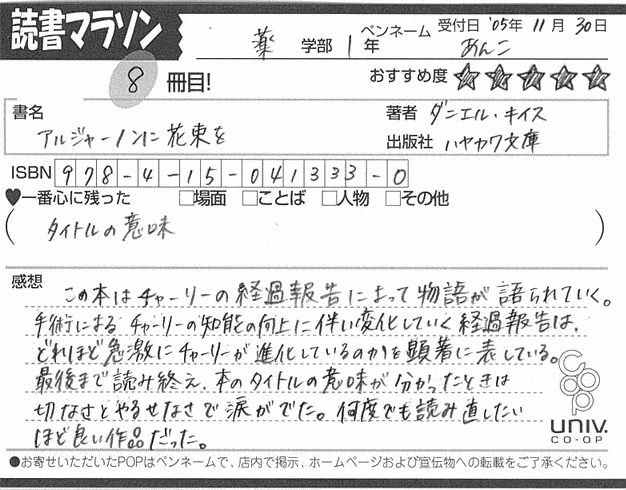 読書マラソン
薬 学部 1年 ペンネーム あんこ 受付日 '05年 11月 30日
8 冊目! おすすめ度 ★★★★★
書名 アルジャーノンに花束を
著者 ダニエル・キイス
出版社 ハヤカワ文庫
ISBN 978-4-15-041333-0
♥一番心に残った □場面 □ことば □人物 □その他
(タイトルの意味)
感想
この本はチャーリーの経過報告によって物語が語られていく。
手術によるチャーリーの知能の向上に伴い変化していく経過報告は、
どれほど急激にチャーリーが進化しているのかを顕著に表している。
最後まで読み終え、本のタイトルの意味が分かったときは
切なさとやるせなさで涙がでた。何度でも読み直したい
ほど良い作品だった。
coop
UNIV.
CO-OP
●お寄せいただいたPOPはペンネームで、店内で掲示、ホームページおよび宣伝物への転載をご了承ください。